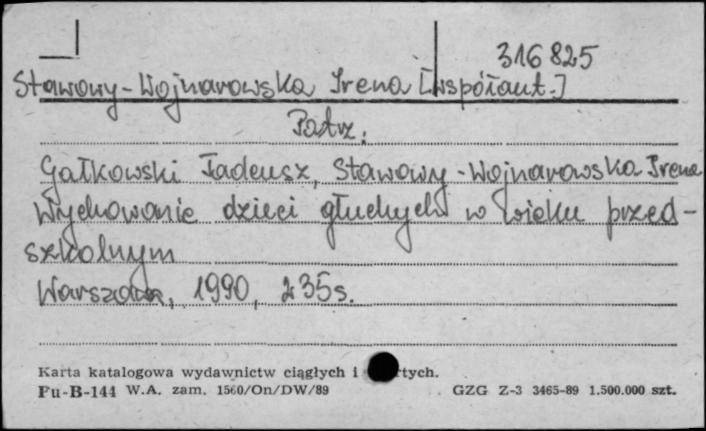 316825
Stawowy-Wojnarowska Irena [współaut.]
Patrz:
Gałkowski Tadeusz, Stawowy-Wojnarowska Irena
Wychowanie dzieci głuchych w wieku przed-
szkolnym
Warszawa, 1990, 235s.
Karta katalogowa wydawnictw ciągłych i rtych.
Pu-B-144 W.A. zam. 1560/On/DW/89 GZG Z-3 3465-89 1.500.000 szt.